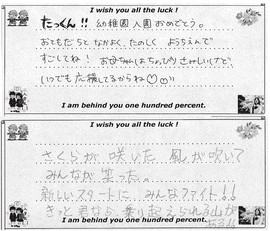 I wish you all the luck !
たっくん!! 幼稚園 入園 おめでとう。
おともだちと なかよく、たのしく ようちえんで
すごしてね! お母ちゃんはちょっぴり さみしいけど、
いつでも 応援してるからね♡
I am behind you one hundred percent.
I wish you all the luck !
さくらが 咲いた 風が吹いて
みんなが 集った。
新しいスタートに みんなファイト!!
きっと 君なら 乗り起えられる山が
ある!!
I am behind you one hundred percent.